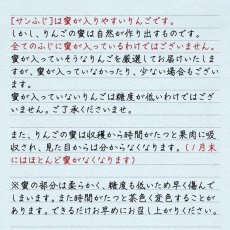 [サンふじ]は蜜が入りやすいりんごです。
しかし、りんごの蜜は自然が作り出すものです。
全てのふじに蜜が入っているわけではございません。
蜜が入っていそうなりんごを厳選してお届けいたしま
すが、蜜が入っていなかったり、少ない場合もござい
ます。
蜜が入っていないりんごは糖度が低いわけではござ
いません。ご了承くださいませ。
また、りんごの蜜は収穫から時間がたつと果肉に吸
収され、見た目からは分からなくなります。(1月末
にはほとんど蜜がなくなります)
※蜜の部分は柔らかく、糖度も低いため早く傷んで
しまいます。また時間がたつと茶色く変色することが
あります。できるだけお早めにお召し上がりください。